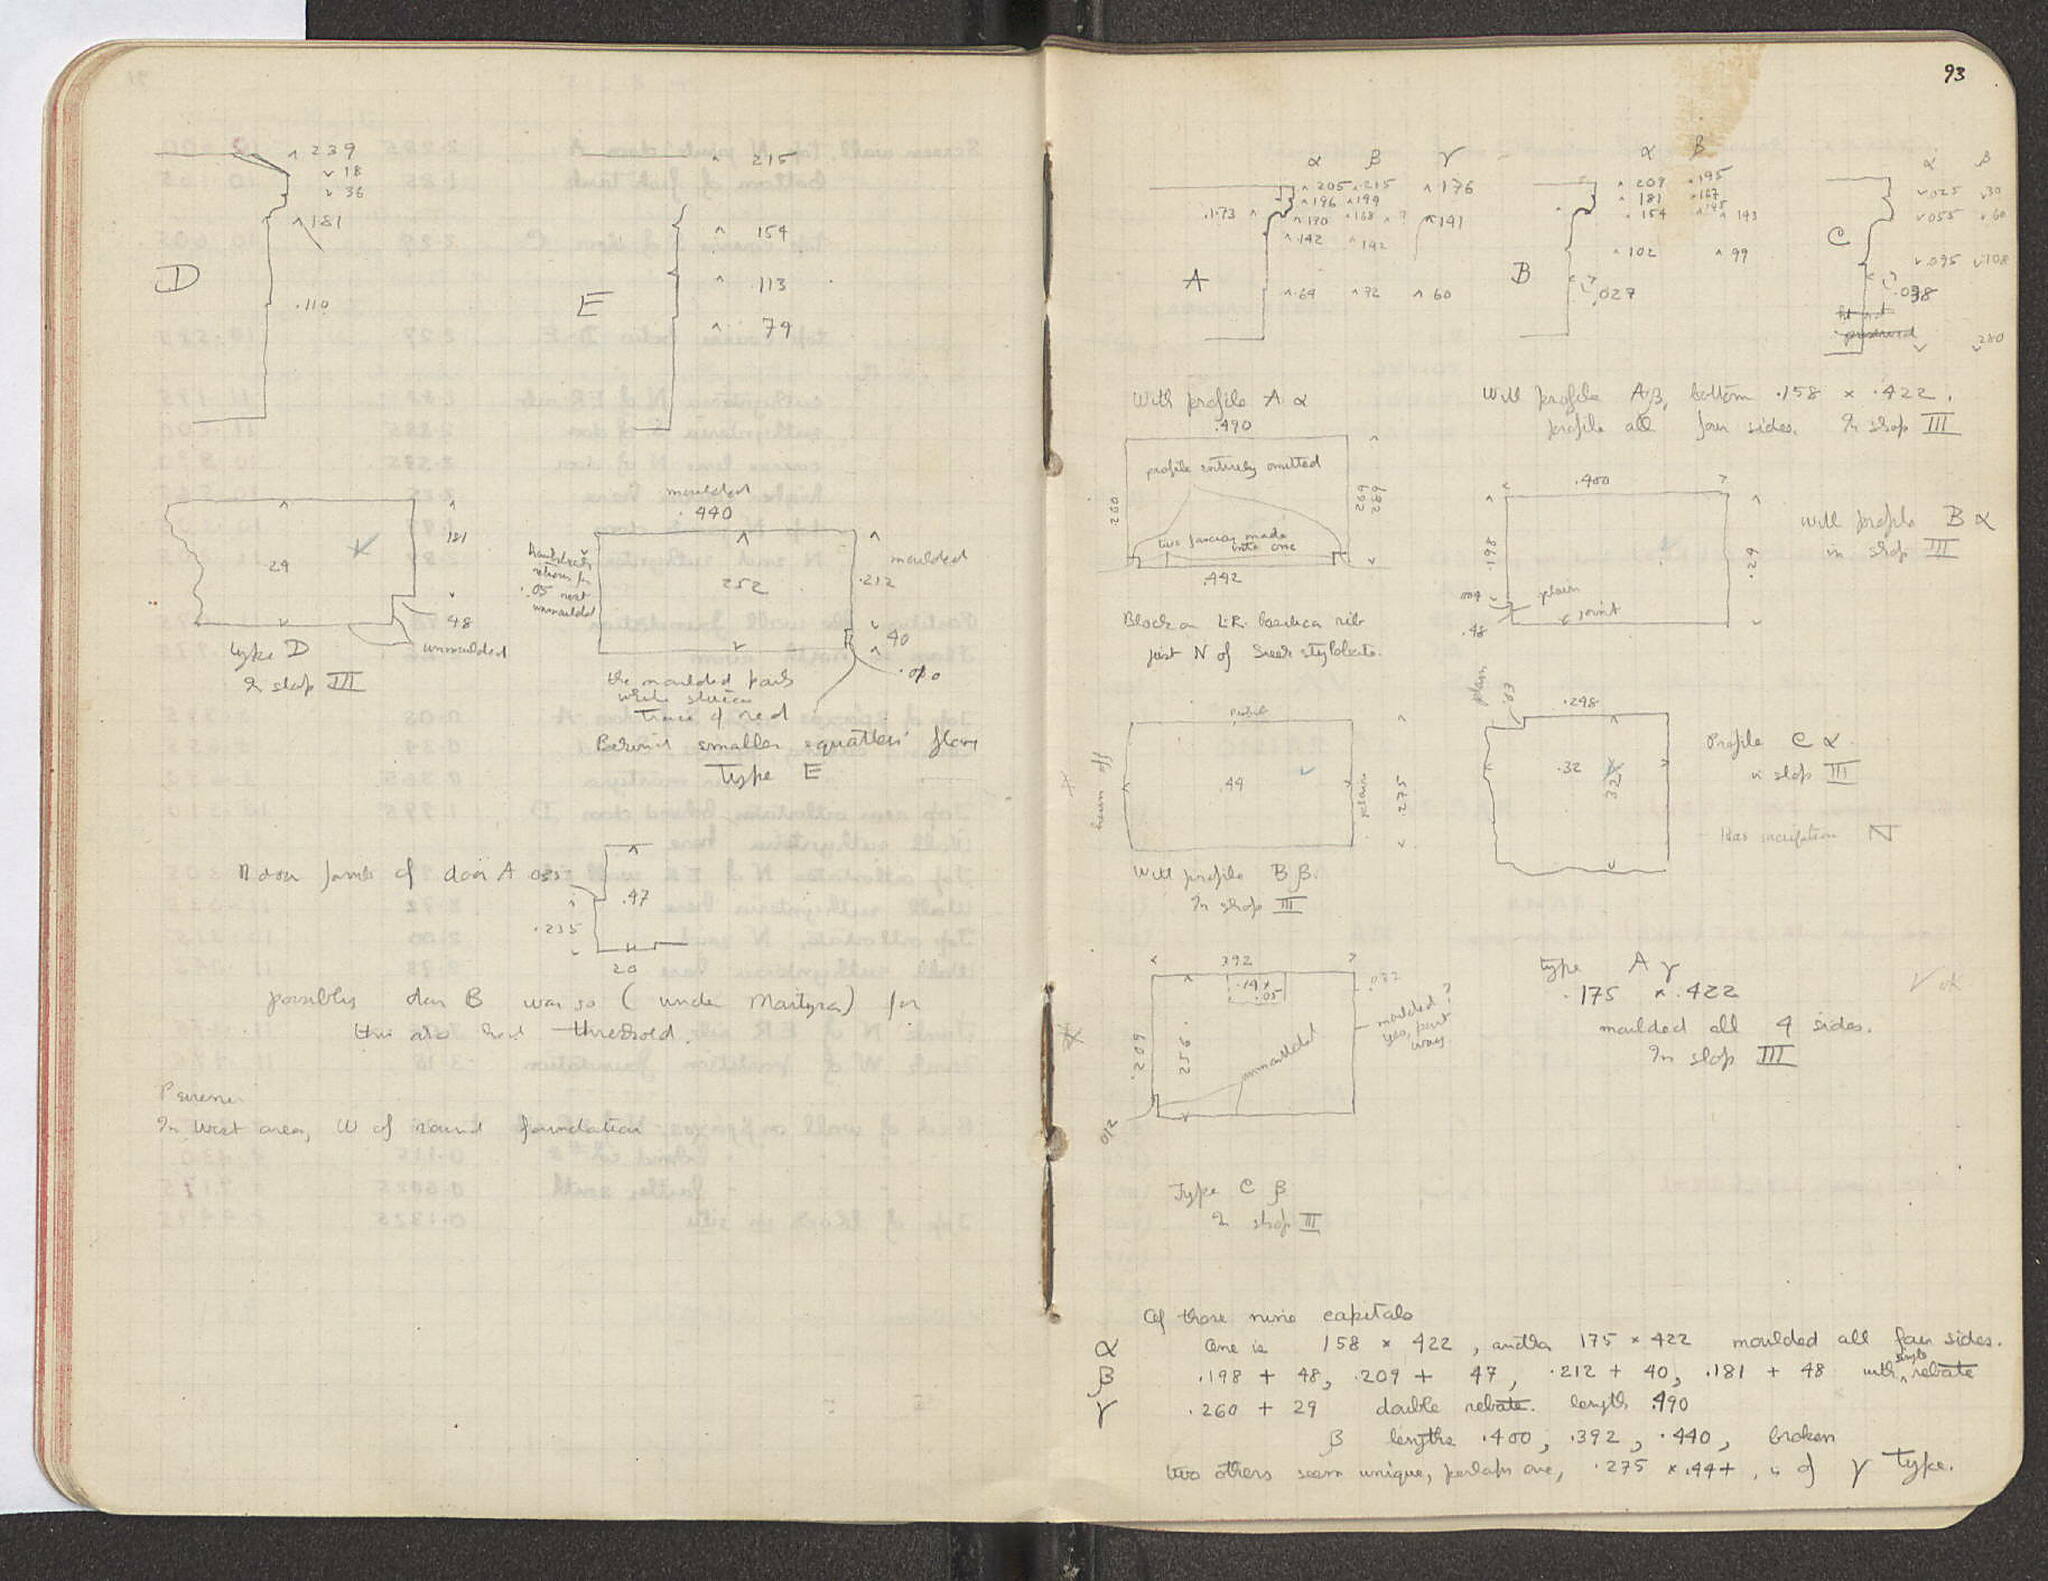 239
18
36
181
.110
D
215
154
113
79
E
181
29
48
unmoulded
type D
In shop III
moulded
.440
252
moulded
.212
40
.05 next
unmoulded
the moulded parts
Trace of red
Behind smaller squatters' floor
Type E
N door jamb of door A
.47
.235
20
possibly door B was so (under Martyra) for
this also had threshold.
In West area, W of round foundation
93
α β γ
.205 .215 176
196 199
.173 170 168 ?
141
142 142
A
.64 72 60
α β
209 .195
181 187
154 145 143
102 99
B
.027
α β
.025 30
.055 .60
C
.095 .108
.038
280
With profile A α
.490
profile entirely omitted
.260
289
two fasciae made
into one
.492
Block on L.R. basilica rib
just N of Greek stylobate.
With profile Aβ, bottom .158 × .422.
profile all four sides. In shop III
.400
.198
.29
plain
joint
.48
With profile B α
in shop III
profile
hewn off
.44
plain
.275
With profile B β.
In shop III
plain
.03
.298
.32
32
Profile C α
in shop III
Has incription N
392
.14 ×
.05
.032
.209
256
unmoulded
moulded?
yes, part
way
012
Type C β
In shop III
type A γ
.175 × .422
moulded all 4 sides.
In shop III
ok
Of those nine capitals
α One is 158 × 422, another 175 × 422 moulded all four sides.
β .198 + 48, .209 + 47, .212 + 40, .181 + 48 with single rebate
γ .260 + 29 double rebate. length .490
β lengths .400, .392, .440, broken
two others seem unique, perhaps one, .275 × .44+, is of γ Type.